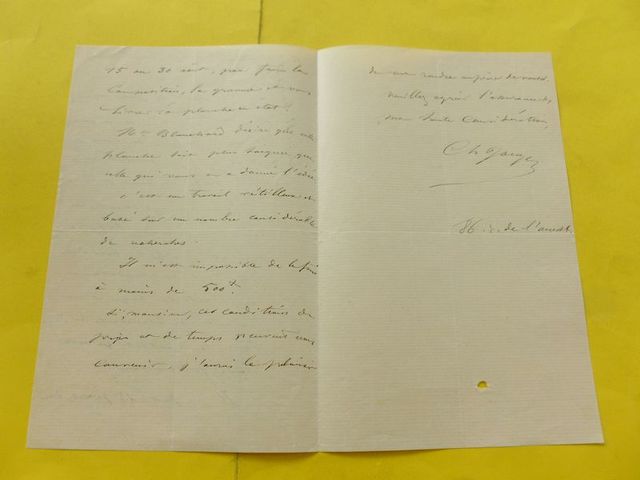 15 au 30 août, pour faire la
composition, la gravure et vous
livrer la planche en état.
Mr Blanchard désire que cette
planche soit plus longue que
celle qui vous en a donné l'idée
c'est un travail
basé sur un nombre considérable
de recherches.
Il m'est impossible de le faire
à moins de 500 f.
Si, monsieur, ces conditions de
prix et de temps peuvent vous
convenir, j'aurai le plaisir
de me rendre
veuillez agréer l'assurance de
ma haute considération
Ch
86 r. de l'ouest.